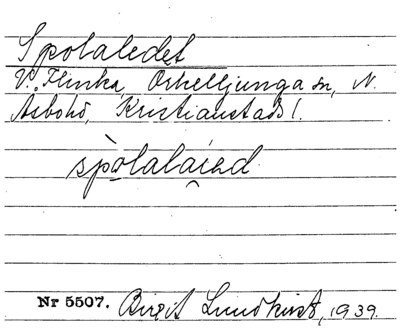 Spolaledet
V. Flinka, Örkelljunga sn, N.
Åsbohd, Kristianstads l.
spolalaied
Nr 5507. Birgit Lundkvist, 1939.